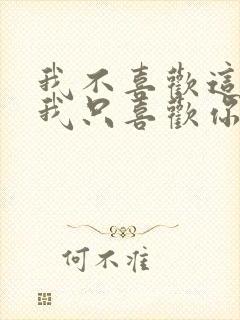 我不喜歡這
我只喜歡你
何不難